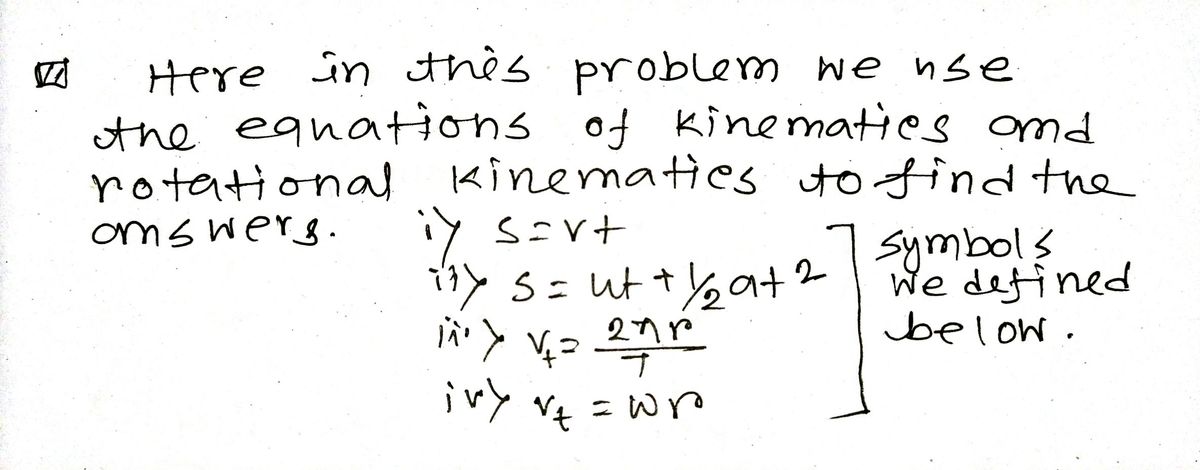 Here in this problem we use
the equations of kinematics and
rotational kinematics to find the
answers. i> s=vt
ii> s = ut + 1/2 at² symbols
we defined
iii> v_t = 2πr/T below.
iv> v_t = ωr